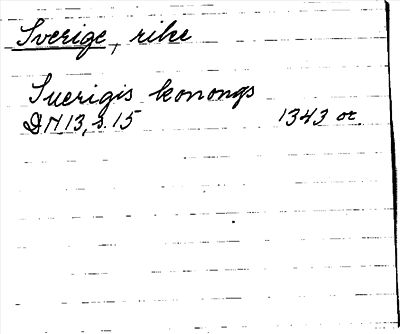 Sverige, rike
Suerigis konongs
DN 13, s. 15 1343 or